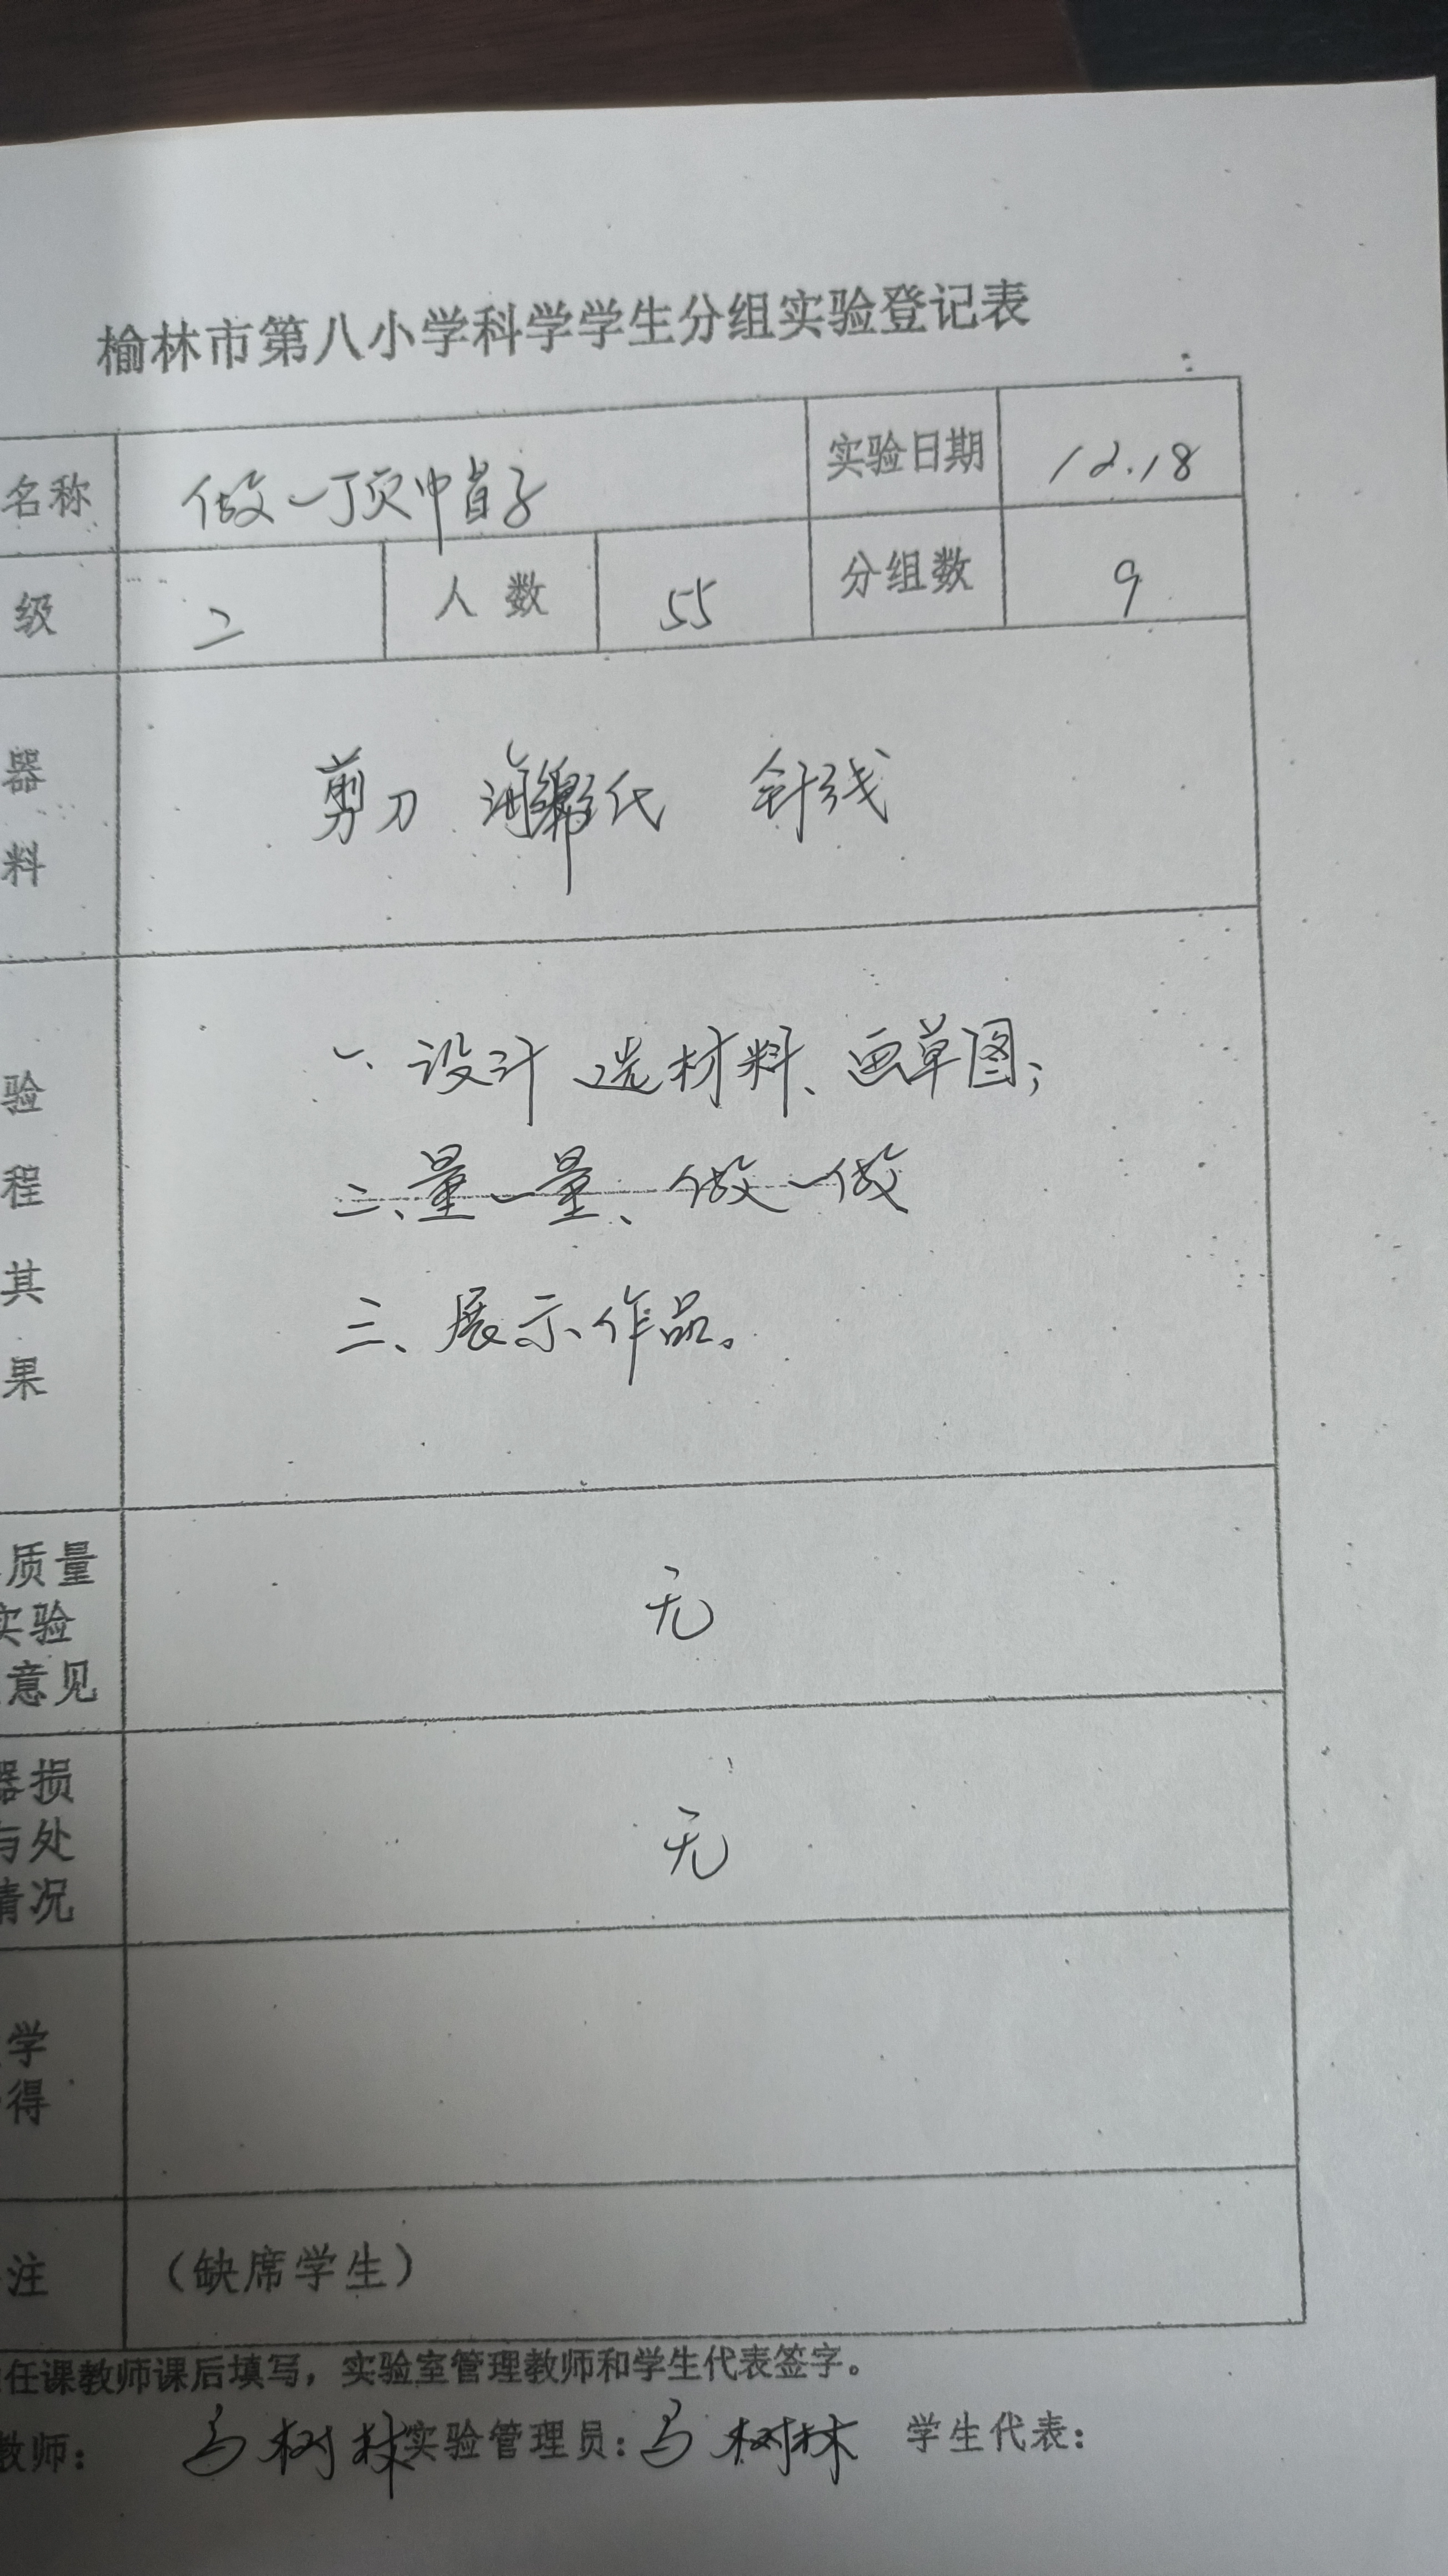 榆林市第八小学科学学生分组实验登记表
名称 做一顶帽子 实验日期 12.18
级 二 人数 55 分组数 9
器 料 剪刀 针线
验 程 其 果
一、设计 选材料、画草图;
二、量一量、做一做
三、展示作品。
质量
实验
意见 无
器损
与处
情况 无
学
得
注 (缺席学生)
任课教师课后填写,实验室管理教师和学生代表签字。
教师: 马树林 实验管理员: 马树林 学生代表: